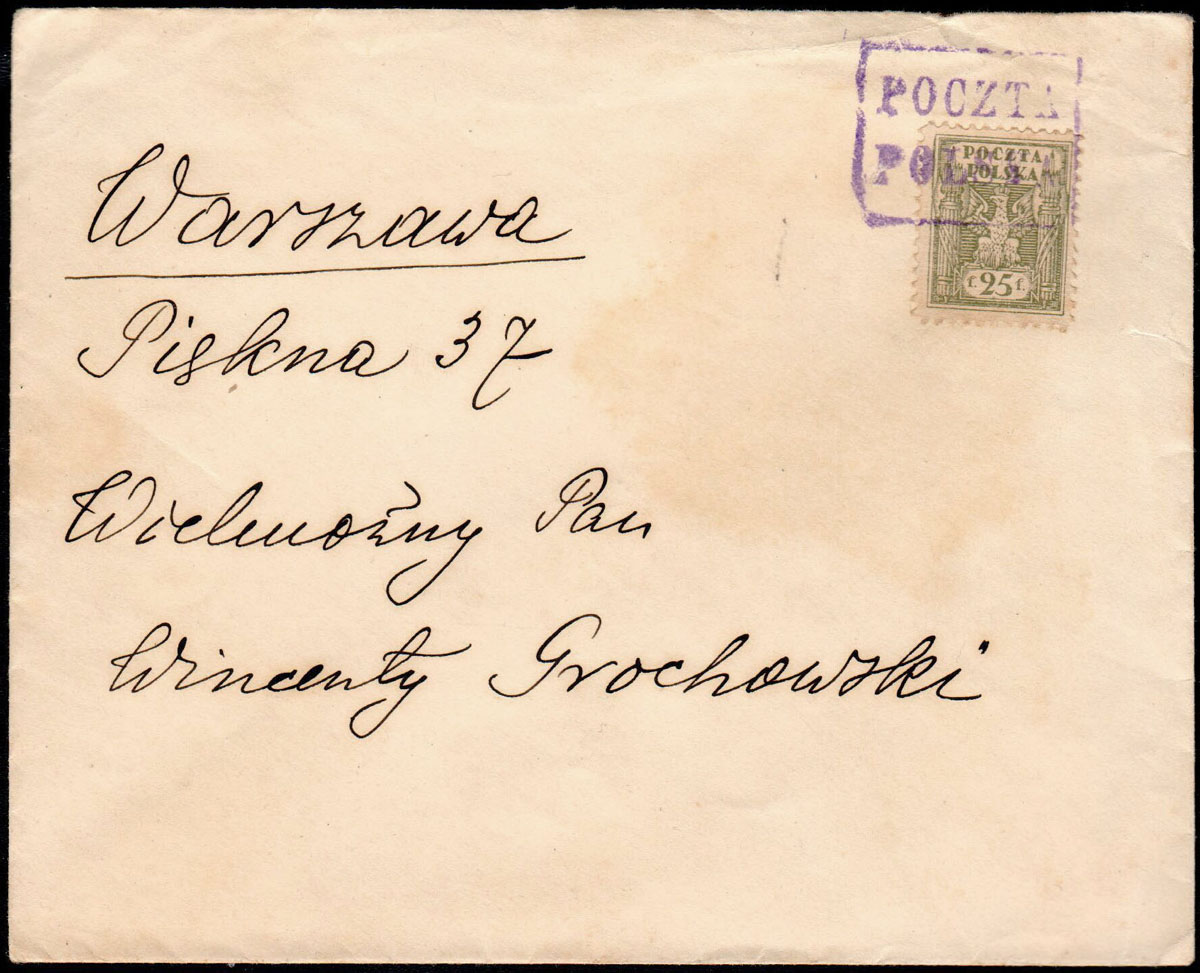 POCZTA
POLSKA
POCZTA
POLSKA
f. 25 f.
Warszawa
Piękna 37
Wielmożny Pan
Wincenty Grochowski